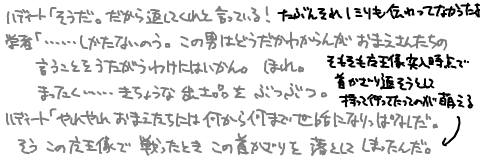 ハデート「そうだ。だから返してくれと言っている！
たぶんそれ1ミリも伝わってなかったよ
学者「……しかたないのう。この男はどうだかわからんが おまえさんたちの
言うことをうたがうわけにはいかん。 ほれ。
まったく…… きちょうな 出土品を ぶつぶつ。
そもそも左王像突入時点で
首かざり返そうとして
持って行ってたってのが萌える
ハデート「やれやれ おまえたちには何から何まで世話になりっぱなしだ。
そう この左王像で 戦ったとき この首かざりを 落として しまったんだ。